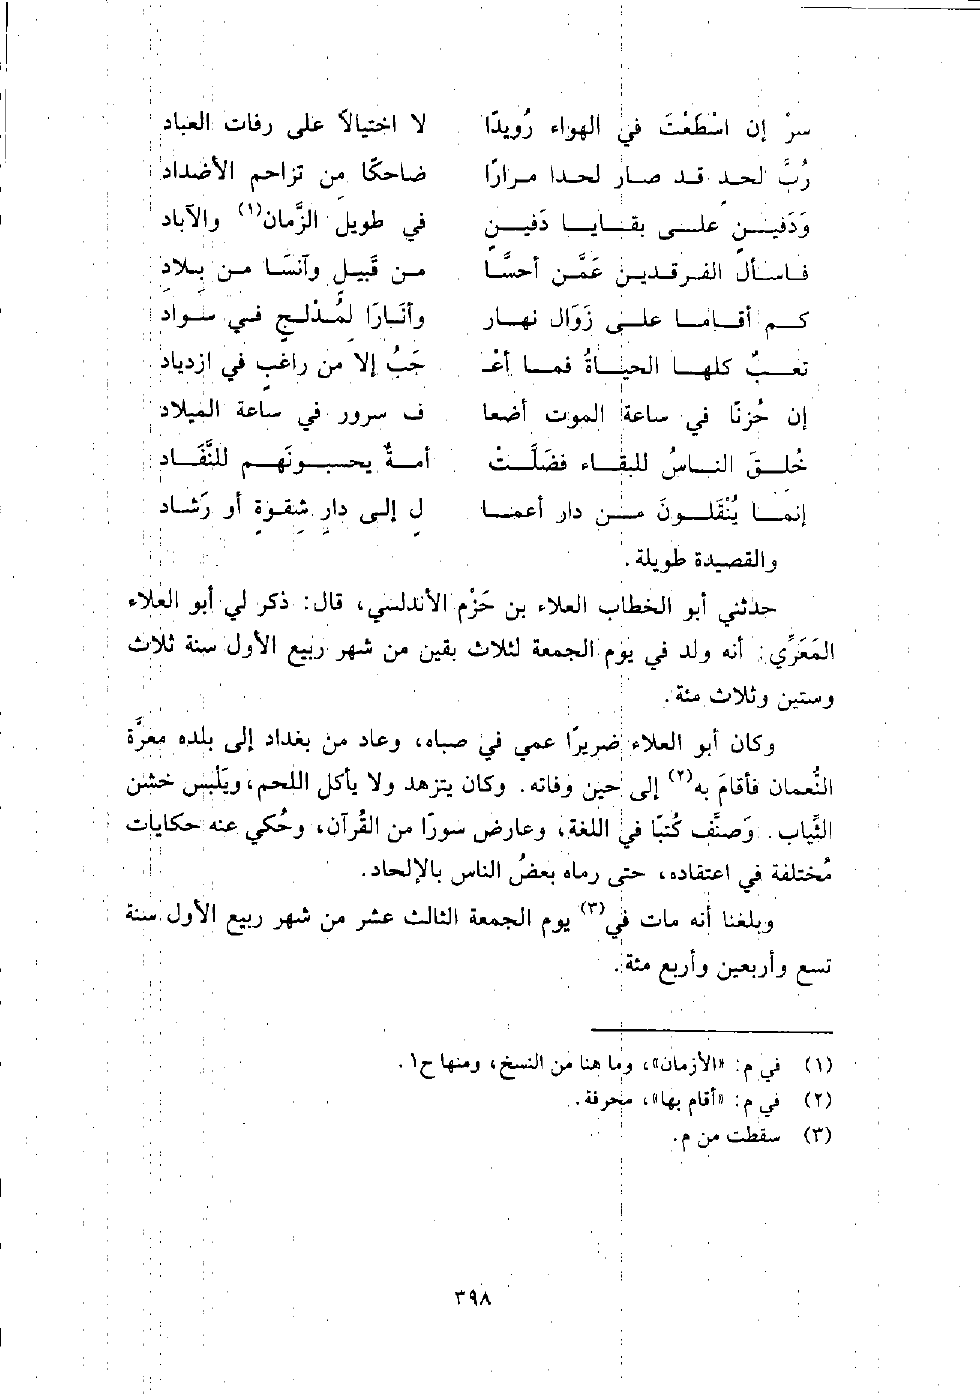 سرْ إن اسْطَعْتَ في الهواء رُويدًا لا اختيالاً على رفات العباد
رُبَّ لحدٍ قد صار لحدا مرارًا ضاحكًا من تزاحم الأضداد
وَدَفينٍ على بقايا دَفينٍ في طويل الزَّمان(١) والآباد
فاسأل الفرقدين عَمَّن أحسَّا من قَبيلٍ وآنسَا من بلادِ
كم أقاما على زَوَال نهار وأنَارَا لمُدْلجٍ في سواد
تعبٌ كلها الحياةُ فما أعْـ جَبُ إلا من راغبٍ في ازدياد
إن حُزنًا في ساعة الموت أضعا ف سرور في ساعة الميلاد
خُلقَ الناسُ للبقاء فضَلَّتْ أمةٌ يحسبونَهم للنَّفَاد
إنما يُنْقَلونَ من دار أعما لٍ إلى دار شقوة أو رَشاد
والقصيدة طويلة.
حدثني أبو الخطاب العلاء بن حَزْم الأندلسي، قال: ذكر لي أبو العلاء
المَعَرِّي: أنه ولد في يوم الجمعة لثلاث بقين من شهر ربيع الأول سنة ثلاث
وستين وثلاث مئة.
وكان أبو العلاء ضريرًا عمي في صباه، وعاد من بغداد إلى بلده معرَّة
النُّعمان فأقامَ به(٢) إلى حين وفاته. وكان يتزهد ولا يأكل اللحم، ويَلْبس خشن
الثِّياب. وَصنَّف كُتبًا في اللغة، وعارض سورًا من القُرآن، وحُكي عنه حكايات
مُختلفة في اعتقاده، حتى رماه بعضُ الناس بالإلحاد.
وبلغنا أنه مات في(٣) يوم الجمعة الثالث عشر من شهر ربيع الأول سنة
تسع وأربعين وأربع مئة.
(١) في م: «الأزمان»، وما هنا من النسخ، ومنها ح١.
(٢) في م: «أقام بها»، محرفة.
(٣) سقطت من م.
٣٩٨